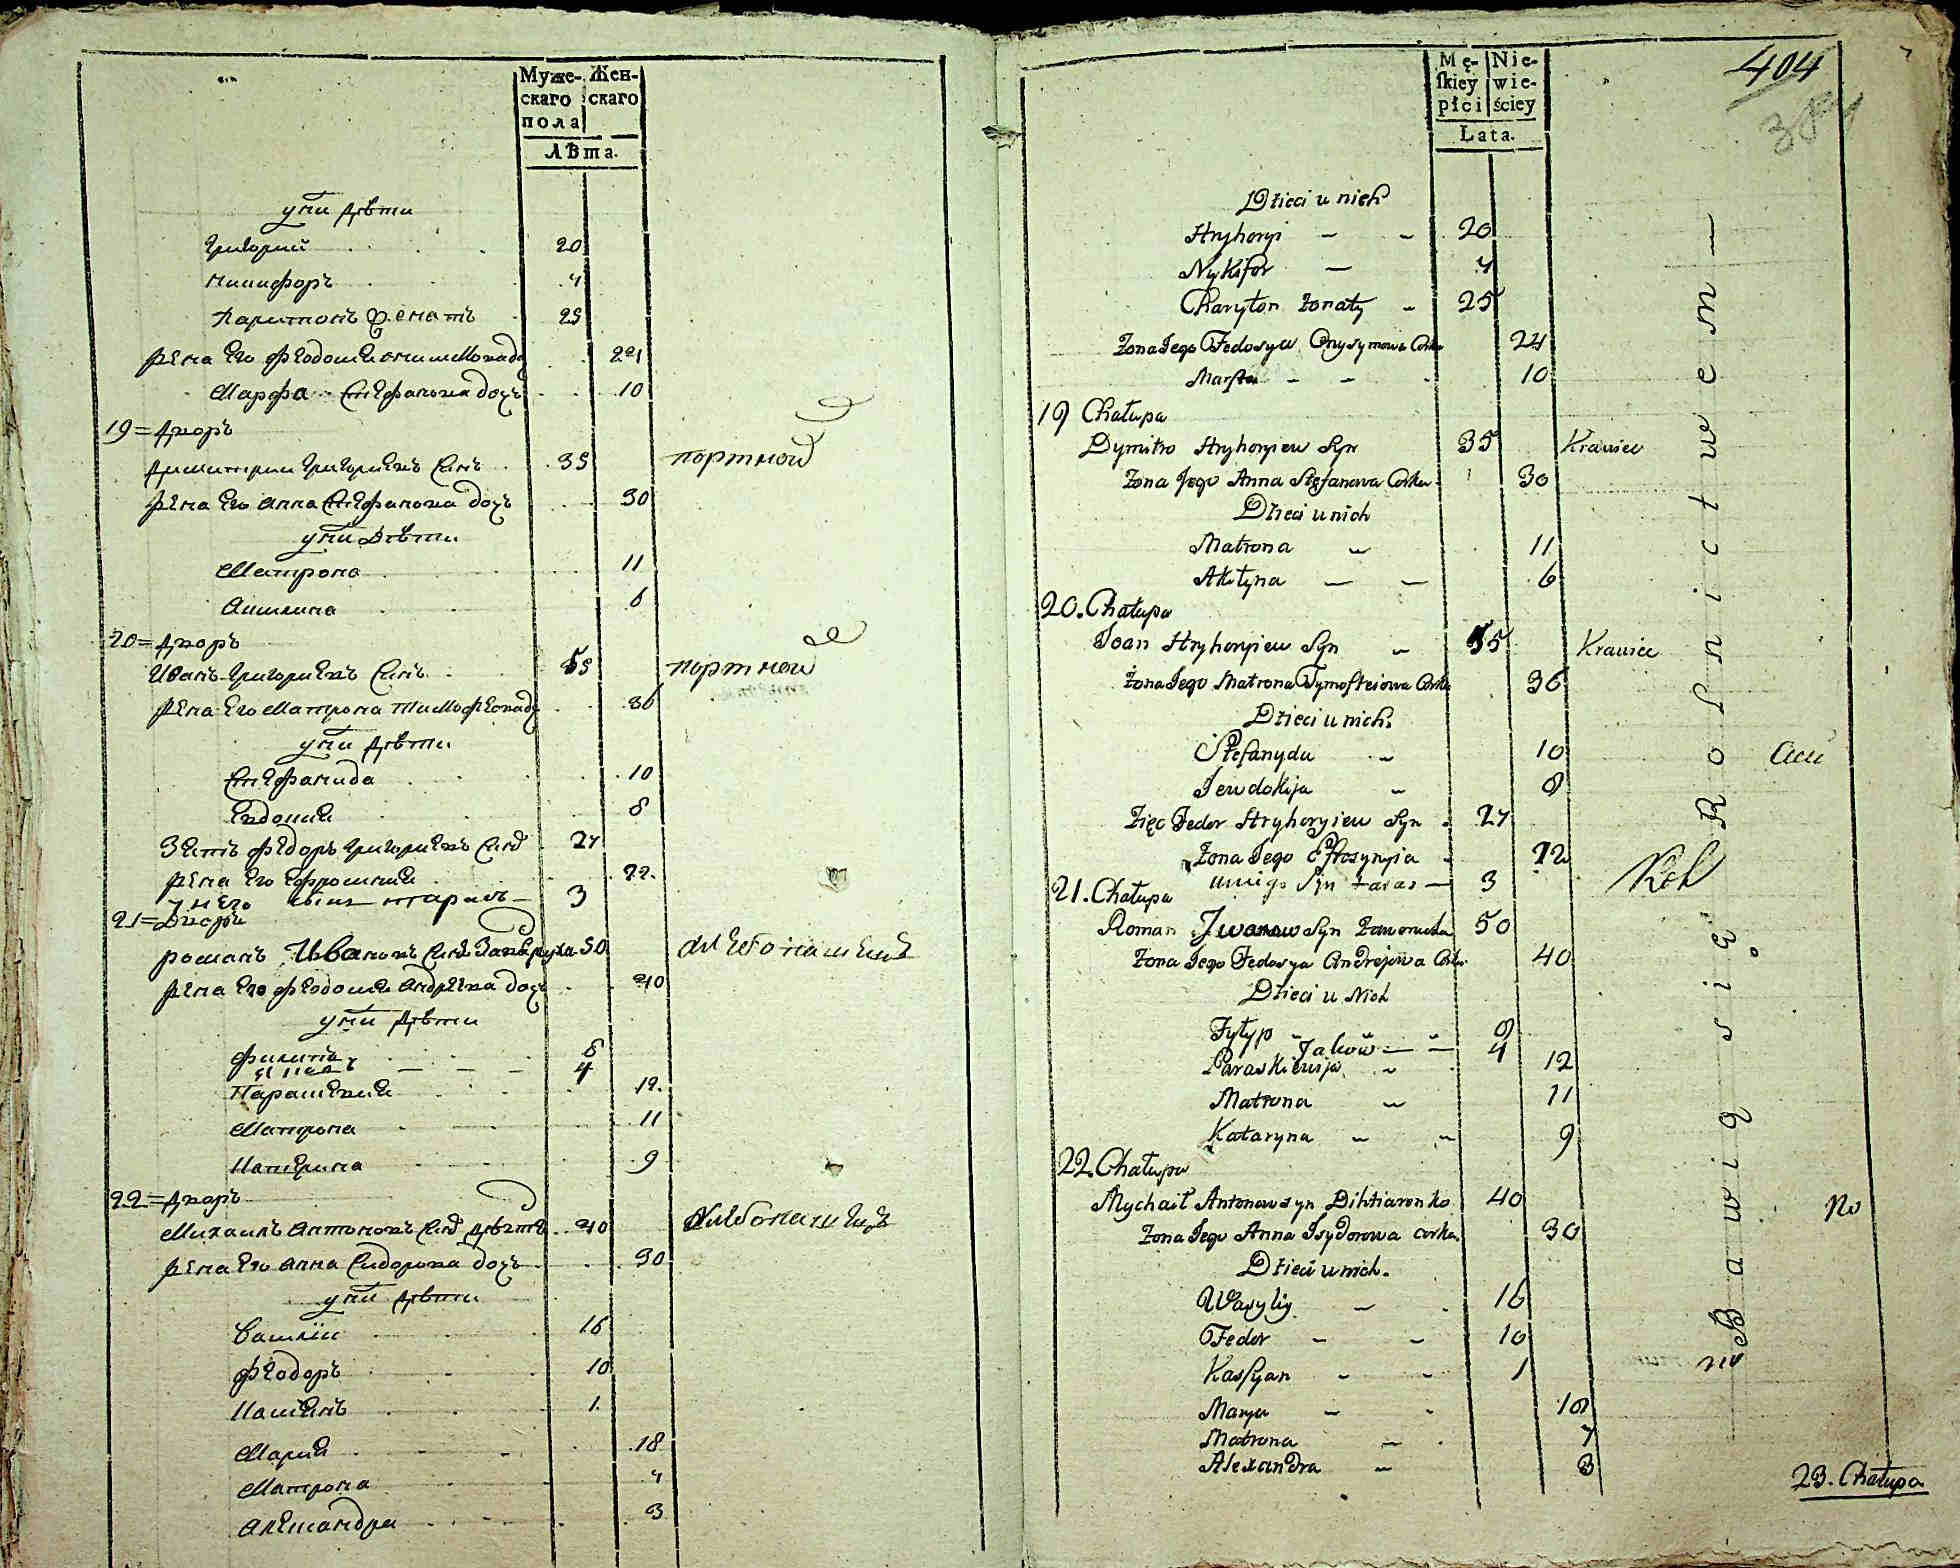 Муже-
скаго
пола
Жен-
скаго
Лѣта.
у них дѣти
Григорий 20
Никифоръ 4
Харитонъ женатъ 25
жена его Феодосия Онисимова до 24
Марфа Стефанова дочь 10
19 = дворъ
Димитрий Григориевъ сынъ 35 портной
жена его Анна Стефанова дочь 30
у них дѣти
Матрона 11
Акилина 6
20 = дворъ
Иванъ Григориевъ сынъ 55 портной
жена его Матрона Тимофеова до 36
у них дѣти
Стефанида 10
Евдокия 8
Зять Феодоръ Григориевъ сынъ 27
жена его Ефросиния 22
у него сынъ Тарасъ 3
21 = дворъ
Романъ Ивановъ сынъ 50 хлебопашецъ
жена его Феодосия Андреева дочь 40
у них дѣти
Филипъ 8
Яковъ 4
Параскевия 12
Матрона 11
Катерина 9
22 = дворъ
Михаилъ Антоновъ сынъ 40 хлебопашецъ
жена его Анна Сидорова дочь 30
у них дѣти
Василий 16
Феодоръ 10
Касиянъ 1
Мария 18
Матрона 7
Александра 3
Mę-
skiey
płci
Nie-
wie-
ściey
Lata.
404
Dzieci u nich
Hryhoryi 20
Nykifor 4
Charyton żonaty 25
Żona Jego Fedosya Onysymowa Corka 24
Marfta 10
19 Chałupa
Dymitro Hryhoryiew Syn 35 Krawiec
Żona Jego Anna Stefanowa Corka 30
Dzieci u nich
Matrona 11
Akilyna 6
20. Chałupa
Joan Hryhoryiew Syn 55 Krawiec
Żona Jego Matrona Tymofteiowa Corka 36
Dzieci u nich.
Stefanyda 10
Jewdokija 8
Zięc Fedor Hryhoryiew Syn 27
Żona Jego Efrosynyia 22
u niego Syn Taras 3
21. Chałupa
Roman Jwanow Syn 50
Żona Jego Fedosya Andrejowa Corka 40
Dzieci u Nich
Fylyp 9
Jakow 4
Paraskiewija 12
Matrona 11
Kataryna 9
22 Chałupa
Mychaił Antonow syn Dihtiarenko 40
Żona Jego Anna Isydorowa corka 30
Dzieci u nich.
Wasyliy 16
Fedor 10
Kasyan 1
Marya 18
Matrona 7
Alexandra 3
Bawią się Rolnictwem
23. Chałupa